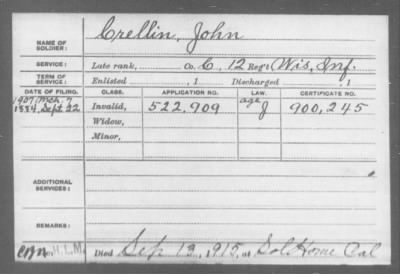 NAME OF SOLDIER: Crellin, John
SERVICE: Late rank, Co. C, 12 Reg't Wis, Inf.
TERM OF SERVICE: Enlisted , 1 Discharged , 1
DATE OF FILING. CLASS. APPLICATION NO. LAW. CERTIFICATE NO.
1907, Mch. 7 age
1884, Sept. 22 Invalid, 522,909 J 900,245
Widow,
Minor,
ADDITIONAL SERVICES:
REMARKS:
H.L.M. Died Sep 13, 1915, at Sol Home Cal